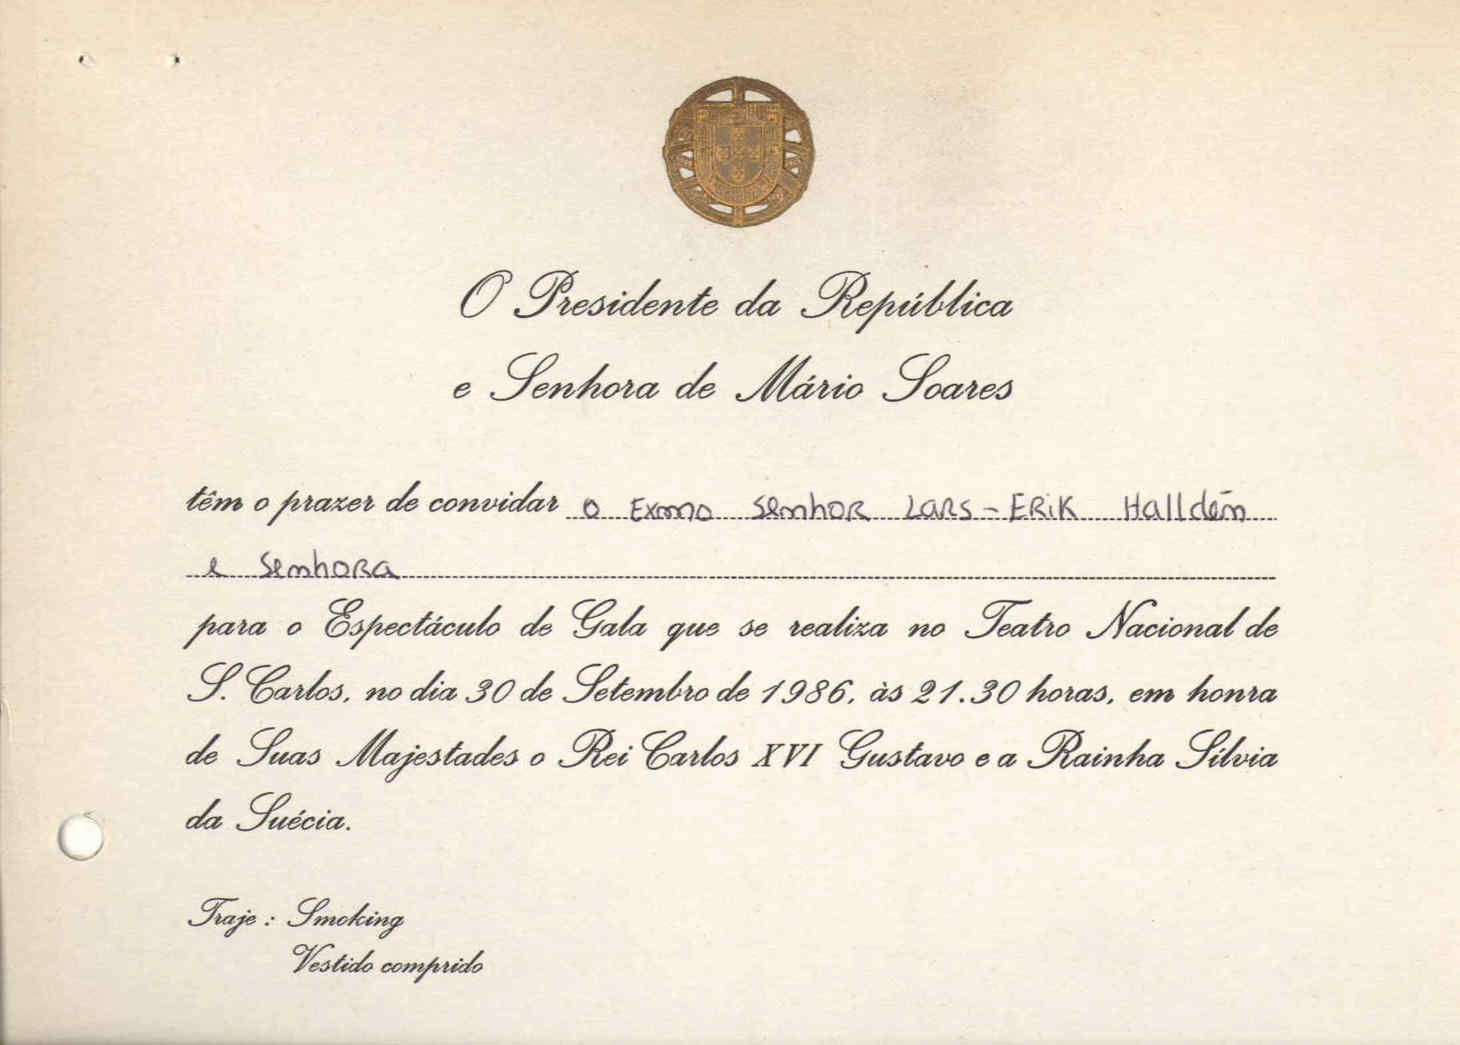 O Presidente da República
e Senhora de Mário Soares
têm o prazer de convidar o Exmo Senhor Lars-Erik Halldén
e Senhora
para o Espectáculo de Gala que se realiza no Teatro Nacional de
S. Carlos, no dia 30 de Setembro de 1986, às 21.30 horas, em honra
de Suas Majestades o Rei Carlos XVI Gustavo e a Rainha Sílvia
da Suécia.
Traje : Smoking
Vestido comprido